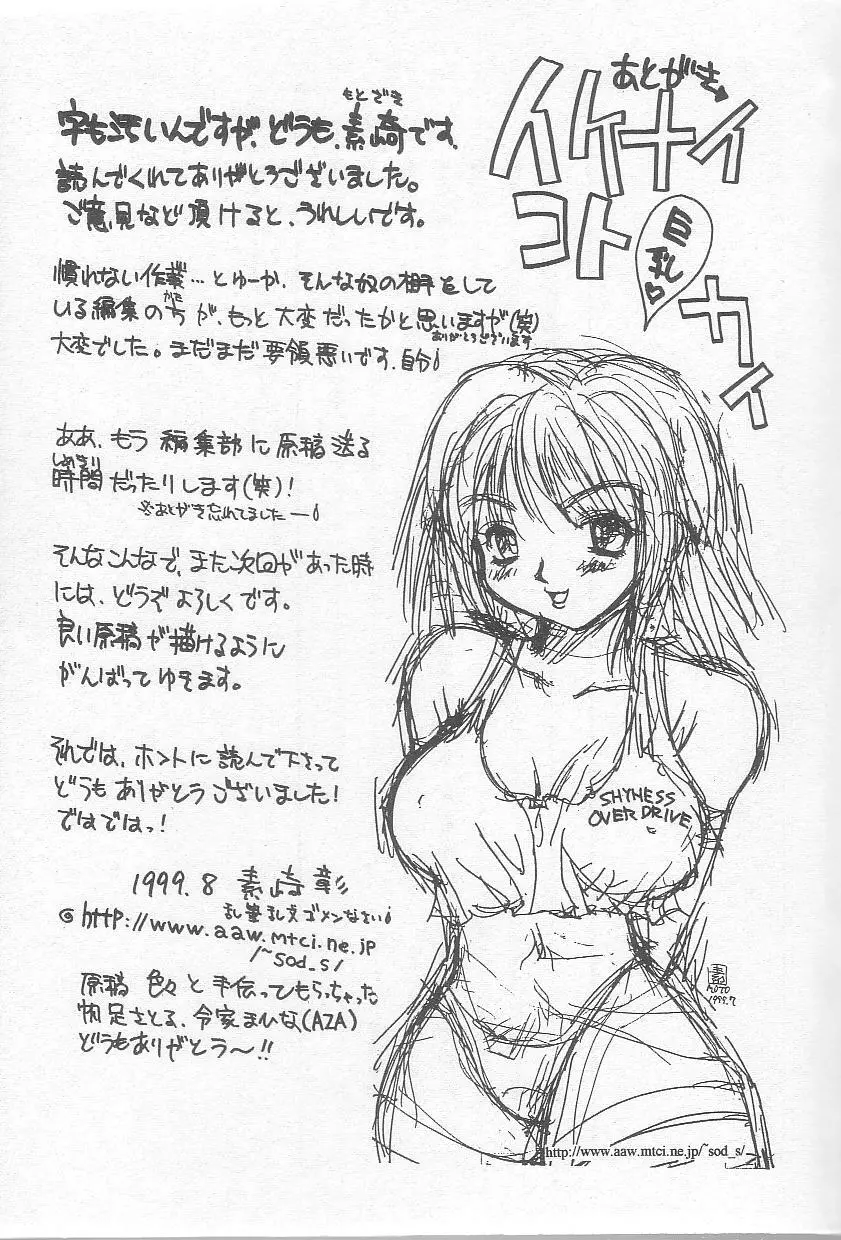 あとがき
イケナイ
コト
巨乳
カイ
もとざき
字も汚いんですが、どうも、素崎です。
読んでくれてありがとうございました。
ご意見など頂けると、うれしいです。
慣れない作業…とゆーか、そんな奴の相手をして
いる編集の方が、もっと大変だったかと思いますが(笑)
がた
ありがとうございます
大変でした。まだまだ要領悪いです、自分
ああ、もう編集部に原稿送る
しめきり
時間だったりします(笑)!
※あとがき忘れてましたー
そんなこんなで、また次回があった時
には、どうぞよろしくです。
良い原稿が描けるように
がんばってゆきます。
それでは、ホントに読んで下さって
どうもありがとうございました!
ではではっ!
1999.8 素崎 彰
乱筆乱文ゴメンなさい
http://www.aaw.mtci.ne.jp
/~sod_s/
原稿 色々と手伝ってもらっちゃった
帆足さとる、令家まひな(AZA)
どうもありがとう〜!!
SHYNESS
OVER DRIVE
素
MOTO
1999.7
http://www.aaw.mtci.ne.jp/~sod_s/